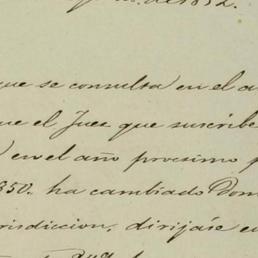 de 1852.
que se consulta en el a
que el Juez que suscribe
en el año procsimo p
850. ha cambiado Dom
risdiccion, dirijase e